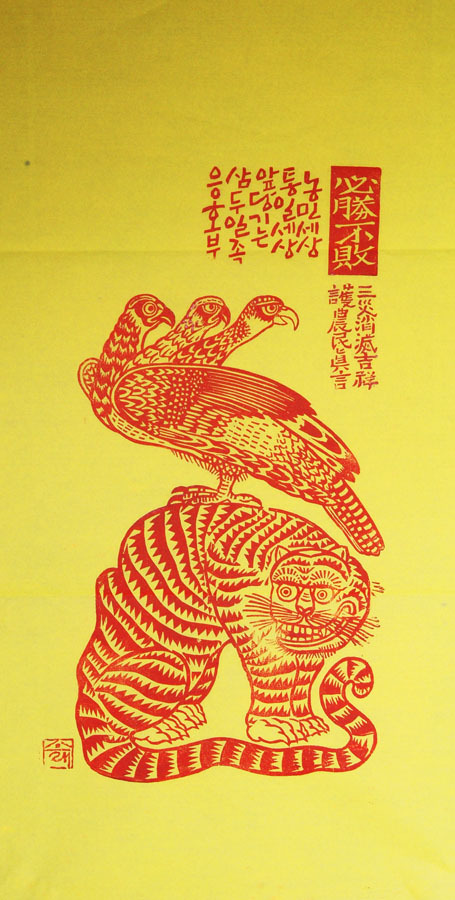 必勝不敗
三災消滅吉祥
護農民眞言
농민세상
통일세상
앞당기는
삼두일족
응호부